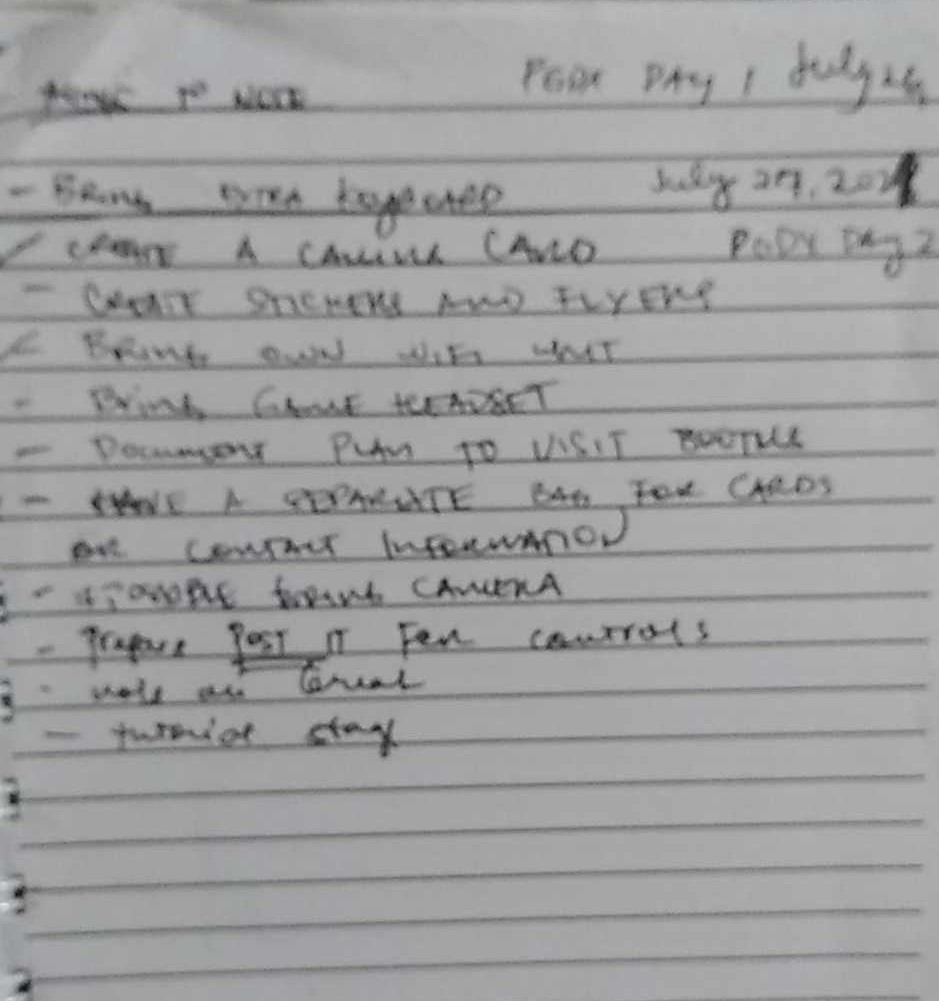 TO NOTE PGDX DAY 1 July 26,
- Bring EXTRA keyboard July 27, 202
✓ CREATE A CALLING CARD PGDX DAY 2
- CREATE STICKERS AND FLYERS
✓ Bring OWN WIFI UNIT
- Bring GAME HEADSET
- Document PLAN TO VISIT BOOTHS
- HAVE A SEPARATE BAG FOR CARDS
OR CONTACT INFORMATION
- bring CAMERA
- Prepare POST IT FOR CONTROLS
- note on
- tutorial stage